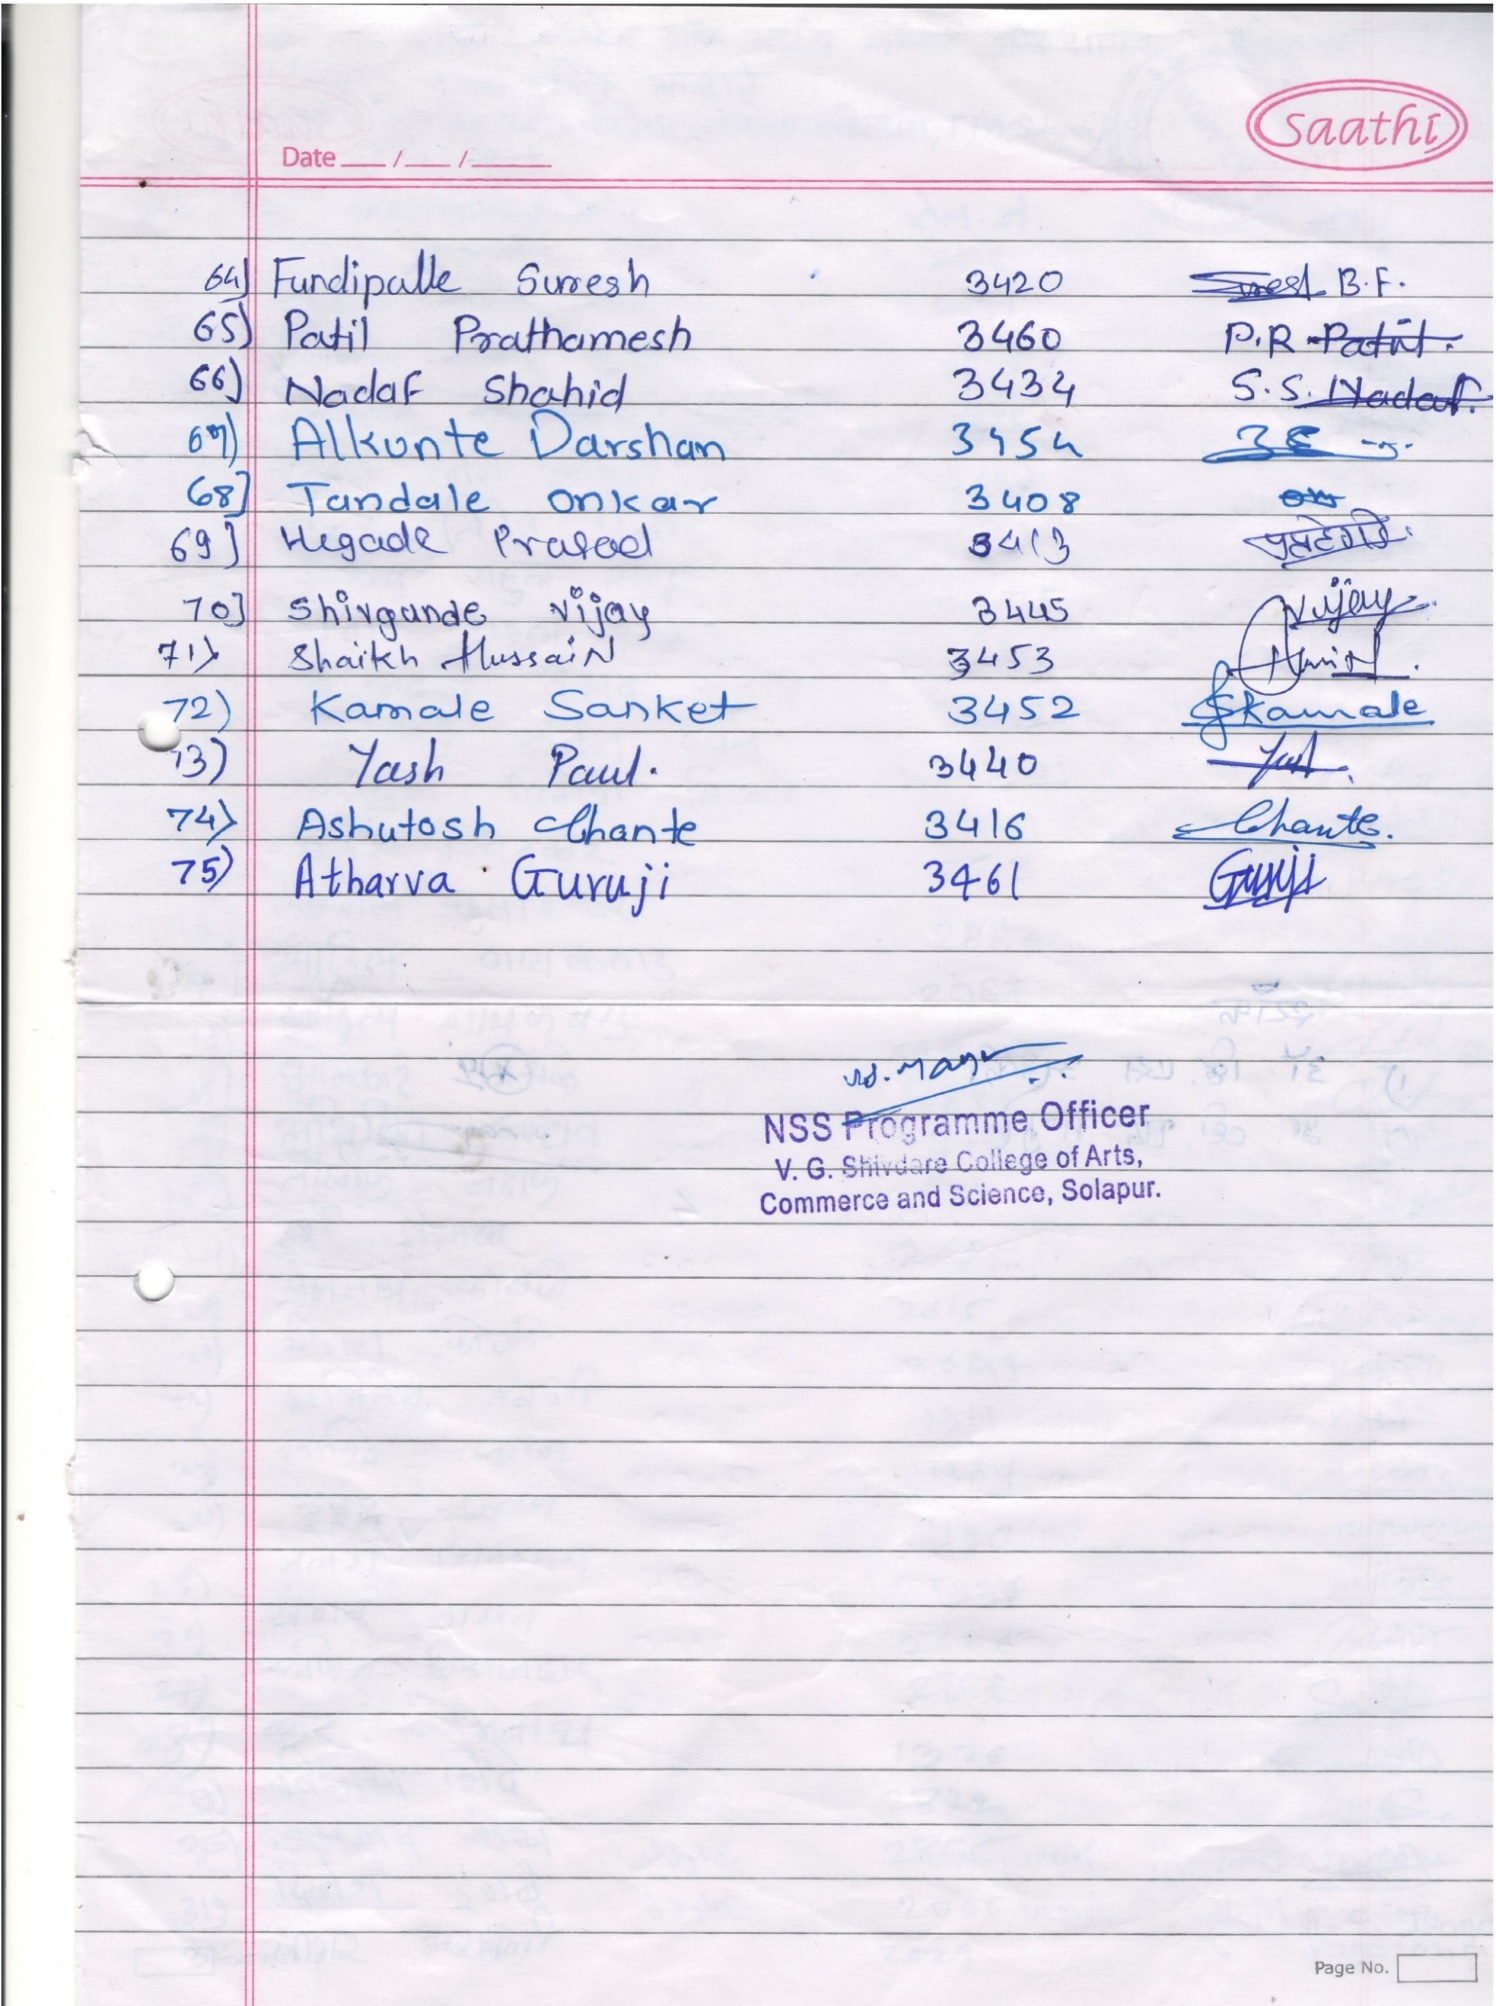 saathi
Date ___ / ___ / _____
64) Fundipalle Suresh 3420 Suresh B.F.
65) Patil Prathamesh 3460 P.R. Patil.
66) Nadaf Shahid 3434 S.S. Nadaf.
67) Alkunte Darshan 3454
68] Tandale onkar 3408 on
69] Hegade Prasad 3413
70] Shivgande vijay 3445 Vijay
71) Shaikh Hussain 3453
72) Kamale Sanket 3452 Skamale
73) Yash Paul. 3440 Yash
74) Ashutosh Chante 3416 Chante.
75) Atharva Guruji 3461 Guruji
NSS Programme Officer
V. G. Shivdare College of Arts,
Commerce and Science, Solapur.
Page No.